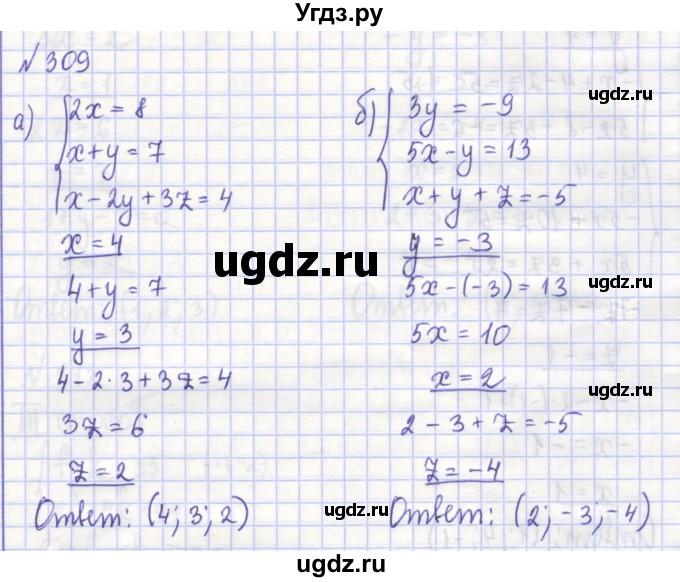 Угдз.ру
№ 309
а) { 2x = 8
x + y = 7
x - 2y + 3z = 4
x = 4
4 + y = 7
y = 3
4 - 2·3 + 3z = 4
3z = 6
z = 2
Ответ: (4; 3; 2)
б) { 3y = -9
5x - y = 13
x + y + z = -5
y = -3
5x - (-3) = 13
5x = 10
x = 2
2 - 3 + z = -5
z = -4
Ответ: (2; -3; -4)
ugdz.ru
ugdz.ru
ugdz.ru
ugdz.ru
ugdz.ru
ugdz.ru
ugdz.ru